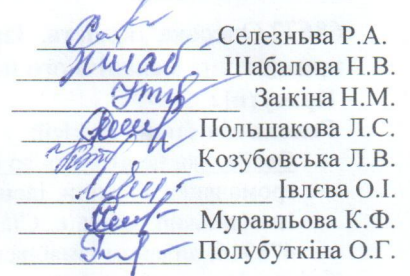 Селезньва Р.А.
Шабалова Н.В.
Заікіна Н.М.
Польшакова Л.С.
Козубовська Л.В.
Івлєва О.І.
Муравльова К.Ф.
Полубуткіна О.Г.